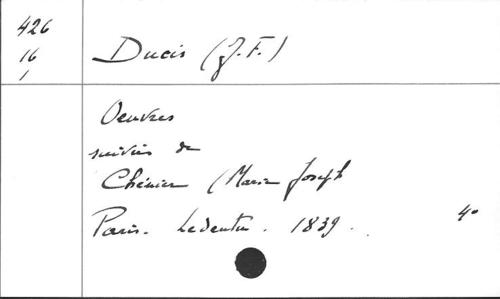 426
16
1
Ducis (J. F.)
Oeuvres
suivies de
Chénier (Marie Joseph
Paris. Ledentu. 1839.
4°